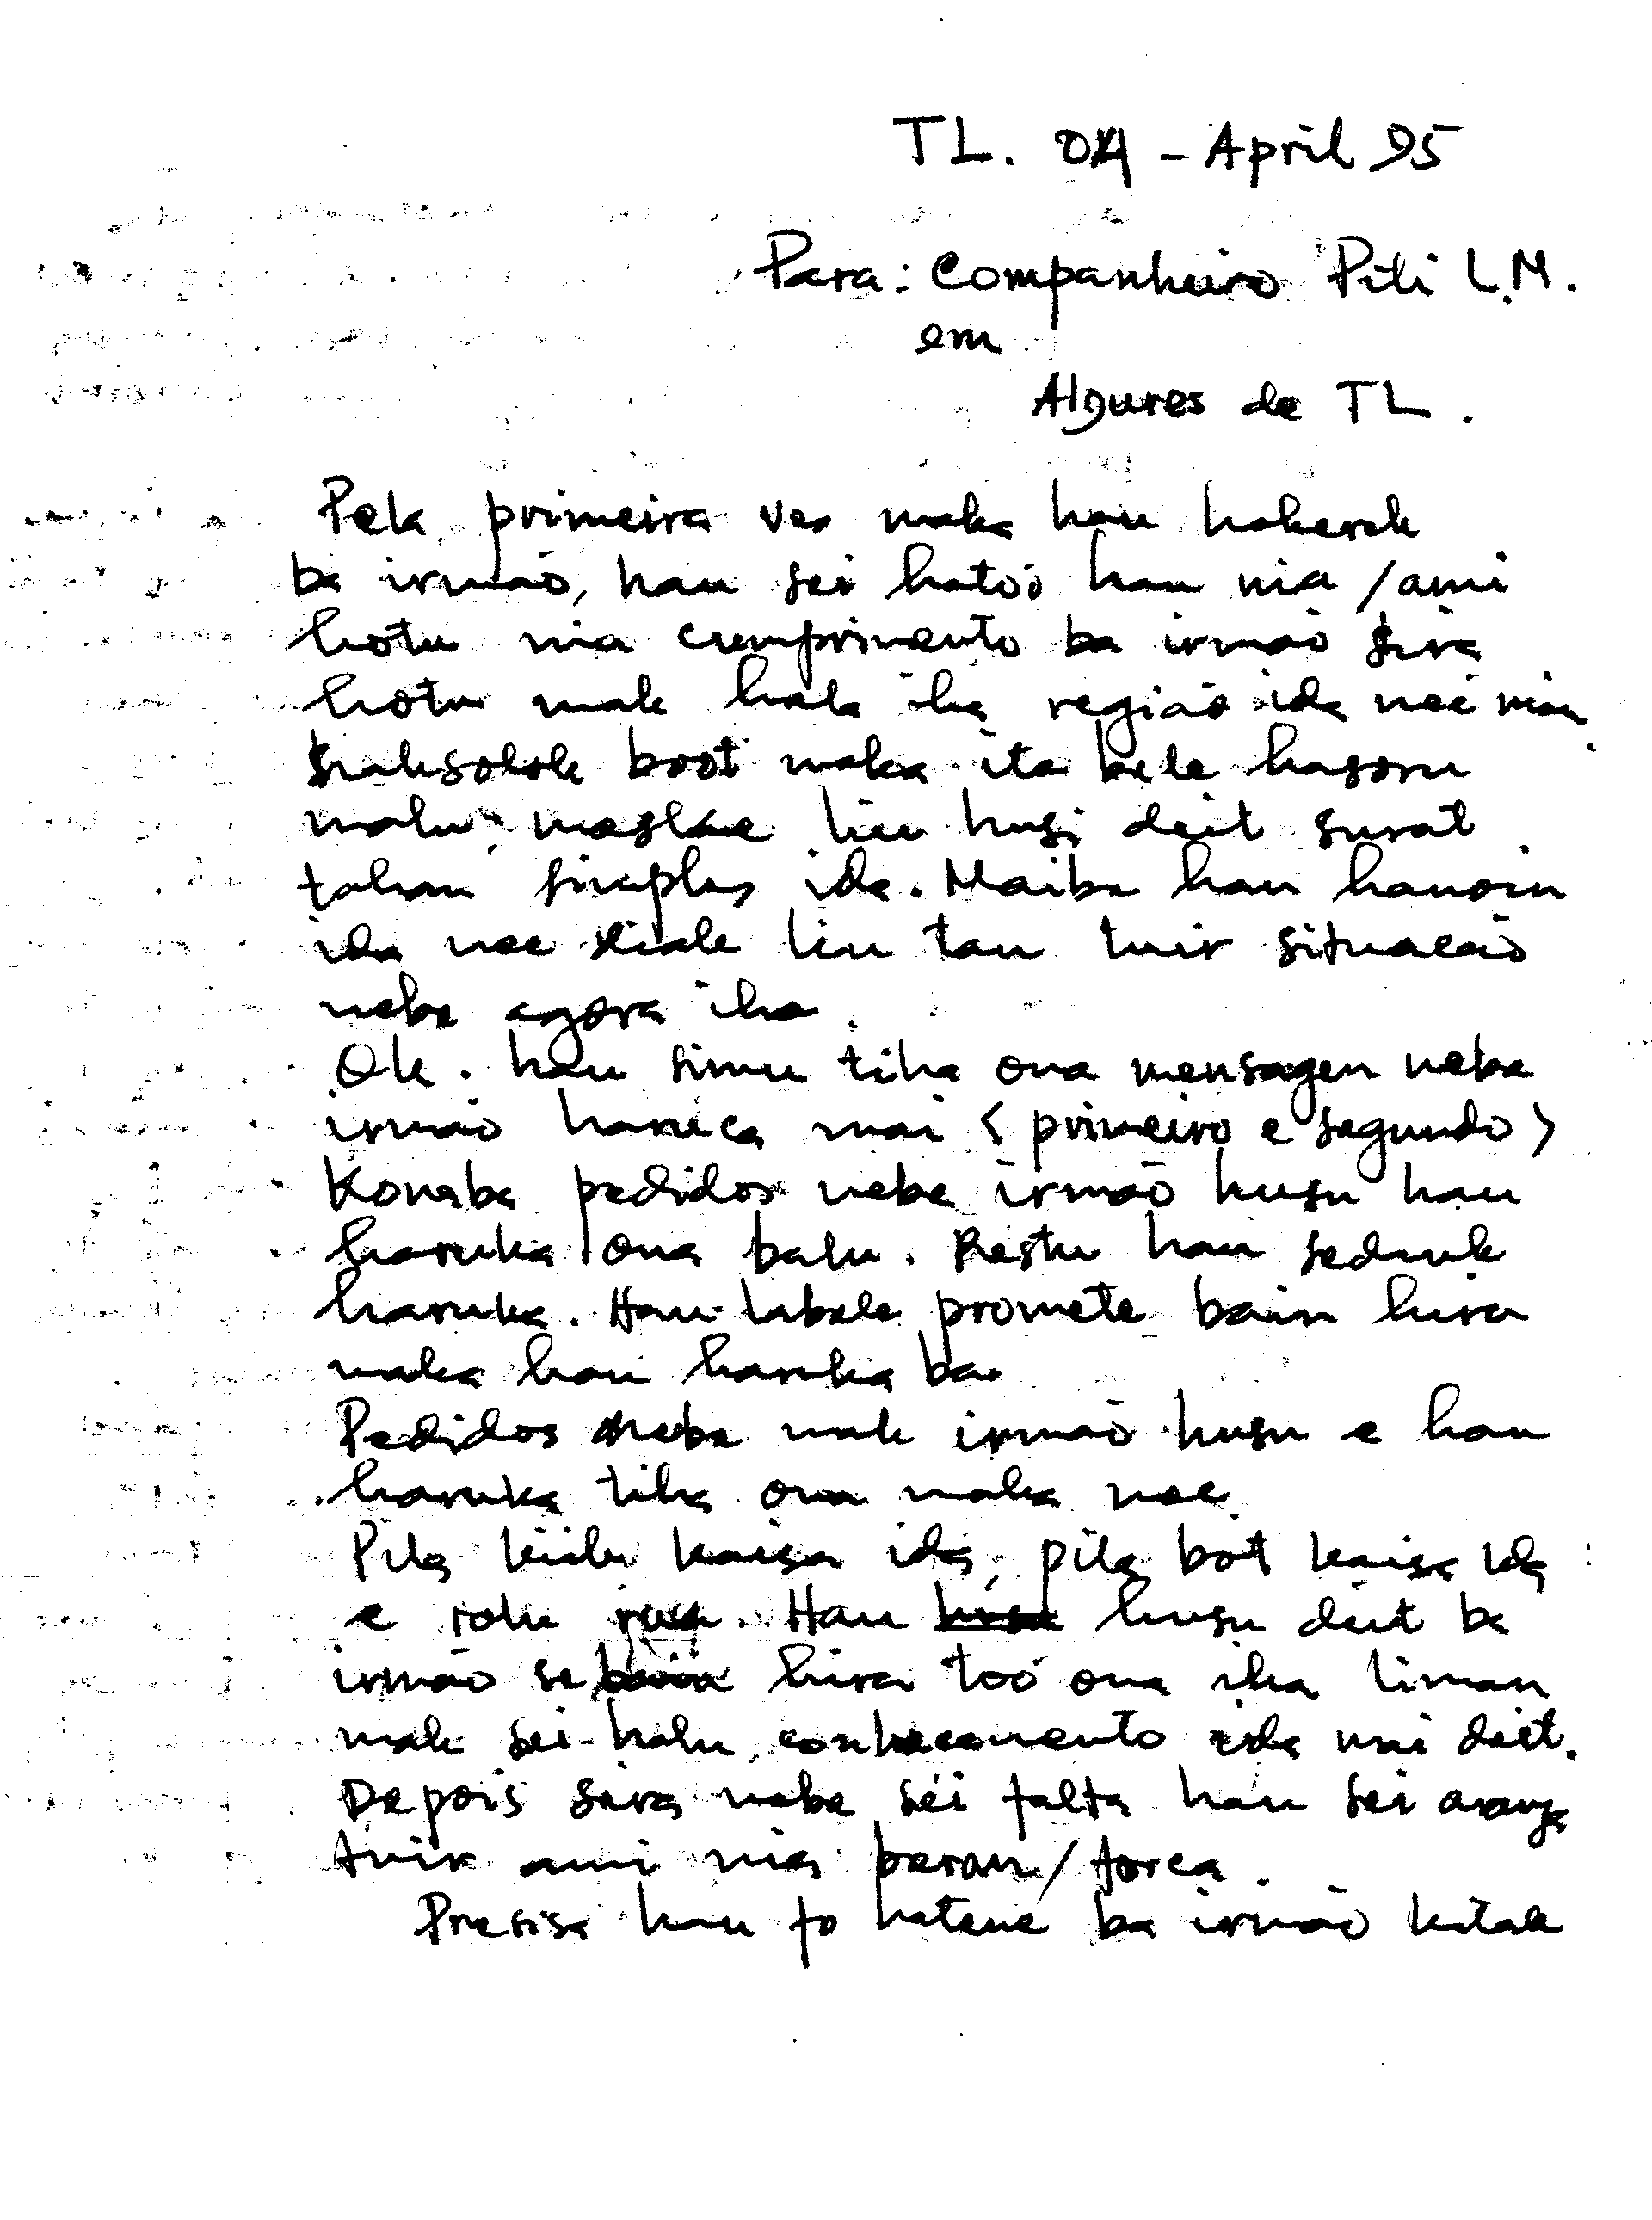 TL. 04 - April 95
Para: Companheiro Piti L.M.
em
Algures de TL.
Pela primeira ves maka hau hakerek
ba irmão, hau sei hatoó hau nia / ami
hotu nia cumprimento ba irmão sira
hotu mak hala iha região ida neé
haksolok boot maka ita bele hasoru
malu maske liu husi deit surat
tahan simples ida. Maibe hau hanoin
ida nee diak liu tau tuir situacão
nebe agora iha.
Ok. hau simu tiha ona mensagen nebe
irmão haruca mai < primeiro e segundo >
Konaba pedidos nebe irmão husu hau
haruka ona balu. Restu hau seduuk
haruka. Hau labele promete bain hira
maka hau haruka ba.
Pedidos nebe mak irmão husu e hau
haruka tiha ona maka nee
Pila kiik kaisa ida, pila bot kaisa ida
e rolu rua. Hau husu deit ba
irmão se bain hira toó ona iha liman
mak sei halu conhecemento ida mai deit.
Depois sira nebe sei falta hau sei aranja
tuir ami nia beran / forca.
Presisa hau fo hatene ba irmão katak